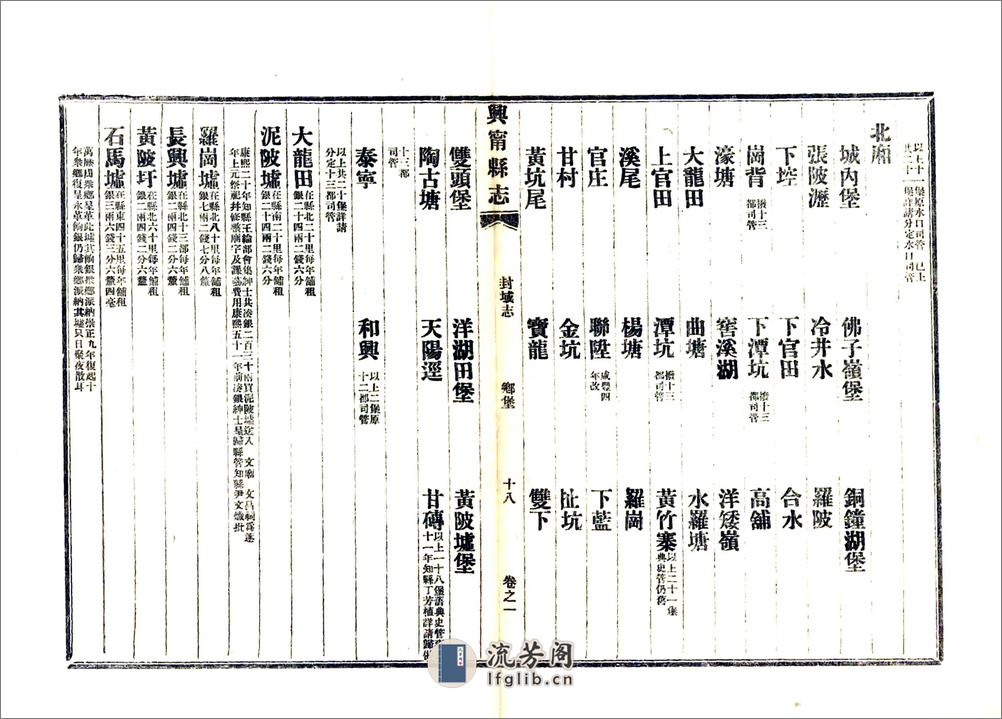 以上十一堡原水口司管 已上
共二十一堡詳請分定水口司管
北廂
城內堡 佛子嶺堡 銅鐘湖堡
張陂瀝 冷井水 羅陂
下控 下官田 合水
崗背 撥十三都司管 下潭坑 撥十三都司管 高舖
濠塘 窖溪湖 洋矮嶺
大龍田 曲塘 水羅塘
上官田 潭坑 撥十三都司管 黃竹寨 以上二十一堡典史管仍舊
溪尾 楊塘 羅崗
官庄 聯陞 咸豐四年改 下藍
甘村 金坑 扯坑
黃坑尾 寶龍 雙下
興甯縣志 封域志 鄉堡 十八 卷之一
雙頭堡 洋湖田堡 黃陂墟堡
陶古塘 天陽逕 甘磚 以上一十八堡舊典史管
十一年知縣丁芳植詳請歸
十三都司管
泰寧 和興 以上二堡原十二都司管
以上共二十堡詳請
分定十三都司管
大龍田 在縣北二十里每年舖租銀二十四兩二錢六分
泥陂墟 在縣南二十里每年舖租銀二十四兩二錢六分
康熙二十年知縣王綸部會集紳士共湊銀二百三十兩買泥陂墟送入 文廟 文昌祠爲遞
年上元祭祀幷修整廟宇及課藝費用康熙五十一年前湊銀紳士呈歸縣管知縣尹文熾批
羅崗墟 在縣北八十里每年舖租銀七兩二錢七分八釐
長興墟 在縣北十三都每年舖租銀二兩四錢二分六釐
黃陂圩 在縣北六十里每年舖租銀二兩四錢二分六釐
石馬墟 在縣東四十五里每年舖租銀六兩三分六釐四毫
萬曆間衆鄉呈革此墟其餉銀撥鄉派納崇正九年復起十
年衆鄉復呈永革餉銀仍歸衆鄉派納其墟只日聚夜散耳
流芳阁
lfglib.cn